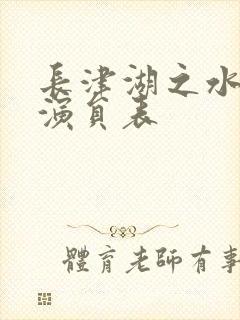 長津湖之水
演員表
體育老師有事